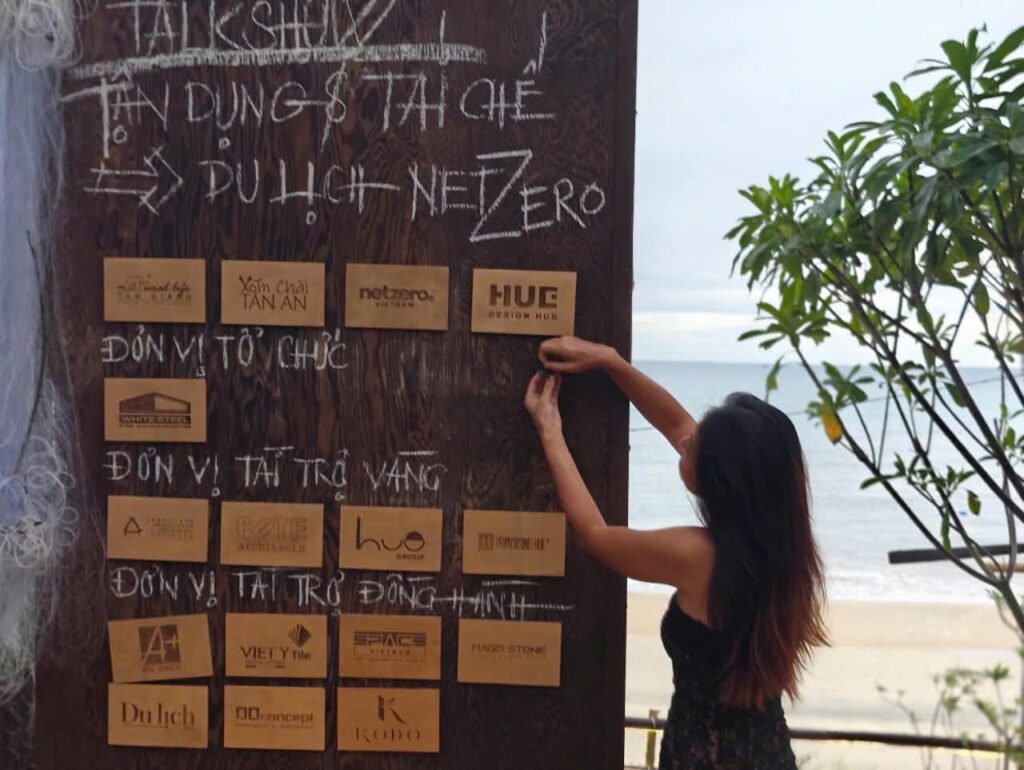 TALKSHOW
TẬN DỤNG & TÁI CHẾ
=> DU LỊCH NETZERO
natural life
TAM GIANG
Xóm Chài
TÂN AN
netzero.
VIETNAM
HUE
DESIGN HUB
ĐƠN VỊ TỔ CHỨC
WHITE STEEL
ĐƠN VỊ TÀI TRỢ VÀNG
COTE
architects
huo
GROUP
ĐƠN VỊ TÀI TRỢ ĐỒNG HÀNH
A+
VIETY Tile
SPACE
VIETNAM
Du lịch
concept
KODO